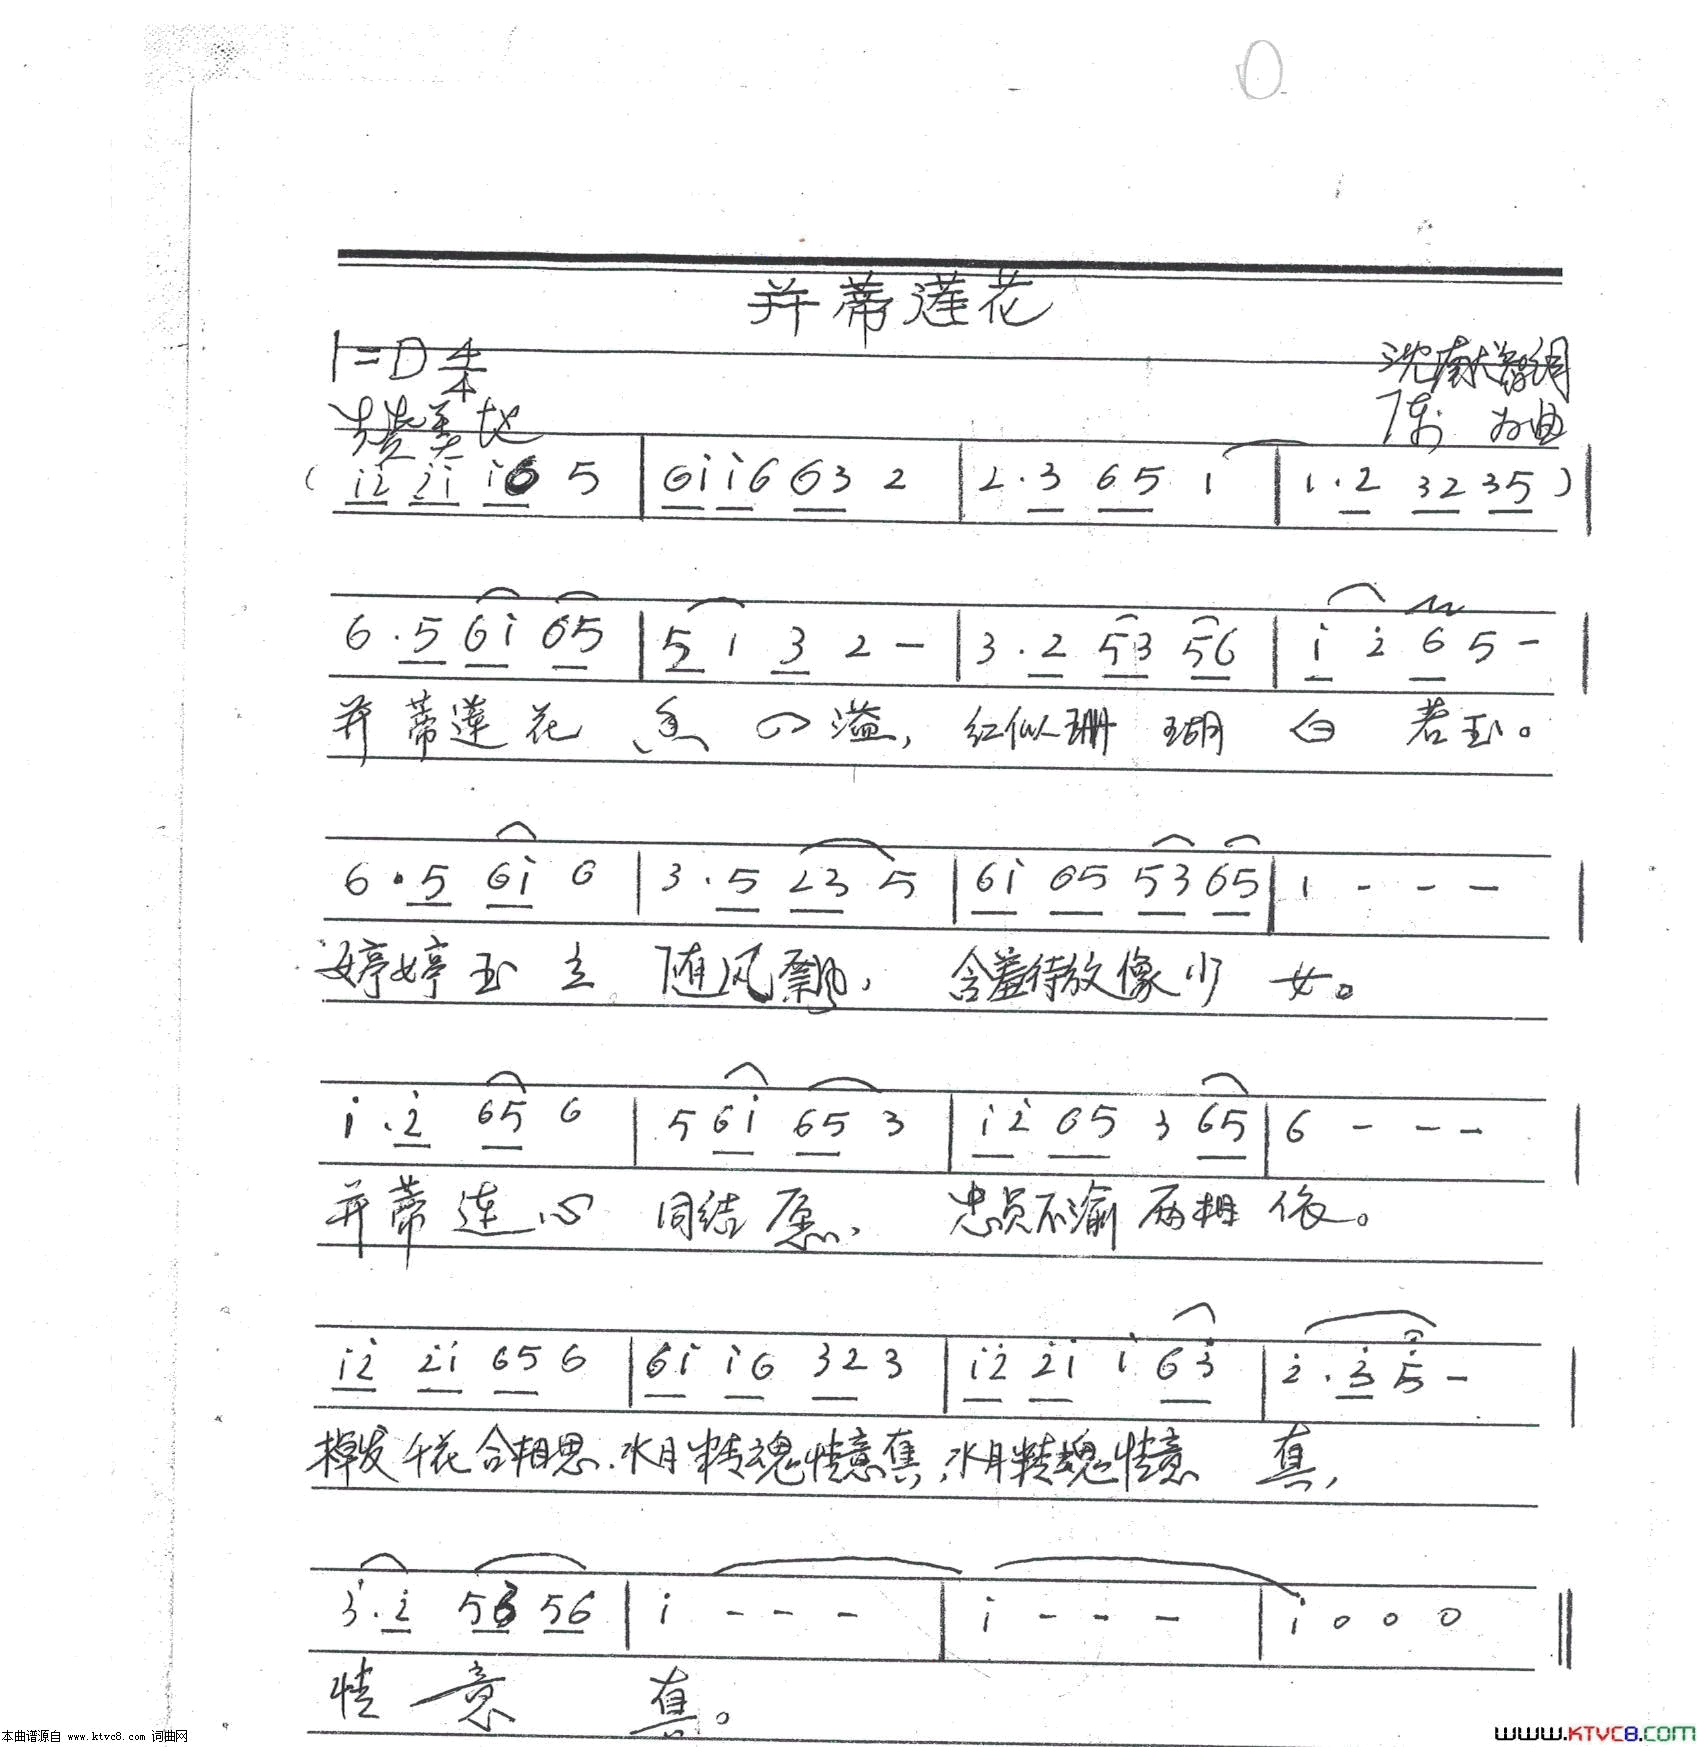 并蒂莲花
1=D 4/4
赞美地
沈南大智词
陈 为曲
( i̇2̇ 2̇i̇ i̇6 5 | 6i̇ i̇6 63 2 | 2·3 65 1 | 1·2 32 35 ) |
6·5 6i̇ 65 | 5 1 3 2 - | 3·2 53 56 | i̇ 2̇ 6 5 - |
并蒂莲花 香 四溢, 红似珊 瑚 白 若玉。
6·5 6i̇ 6 | 3·5 23 5 | 6i̇ 65 53 65 | 1 - - - |
婷婷玉立 随风飘, 含羞待放像少 女。
i̇·2̇ 65 6 | 5 6i̇ 65 3 | i̇2̇ 65 3 65 | 6 - - - |
并蒂连心 同结愿, 忠贞不渝两相 依。
i̇2̇ 2̇i̇ 65 6 | 6i̇ i̇6 32 3 | i̇2̇ 2̇i̇ i̇ 63̇ | 2̇·3̇ 5̇ - |
棹发千花含相思, 水月精魂情意真, 水月精魂情意 真,
3̇·2̇ 53 56 | i̇ - - - | i̇ - - - | i̇ 0 0 0 ‖
情 意 真。
本曲谱源自 www.ktvc8.com 词曲网
www.KTVC8.COM